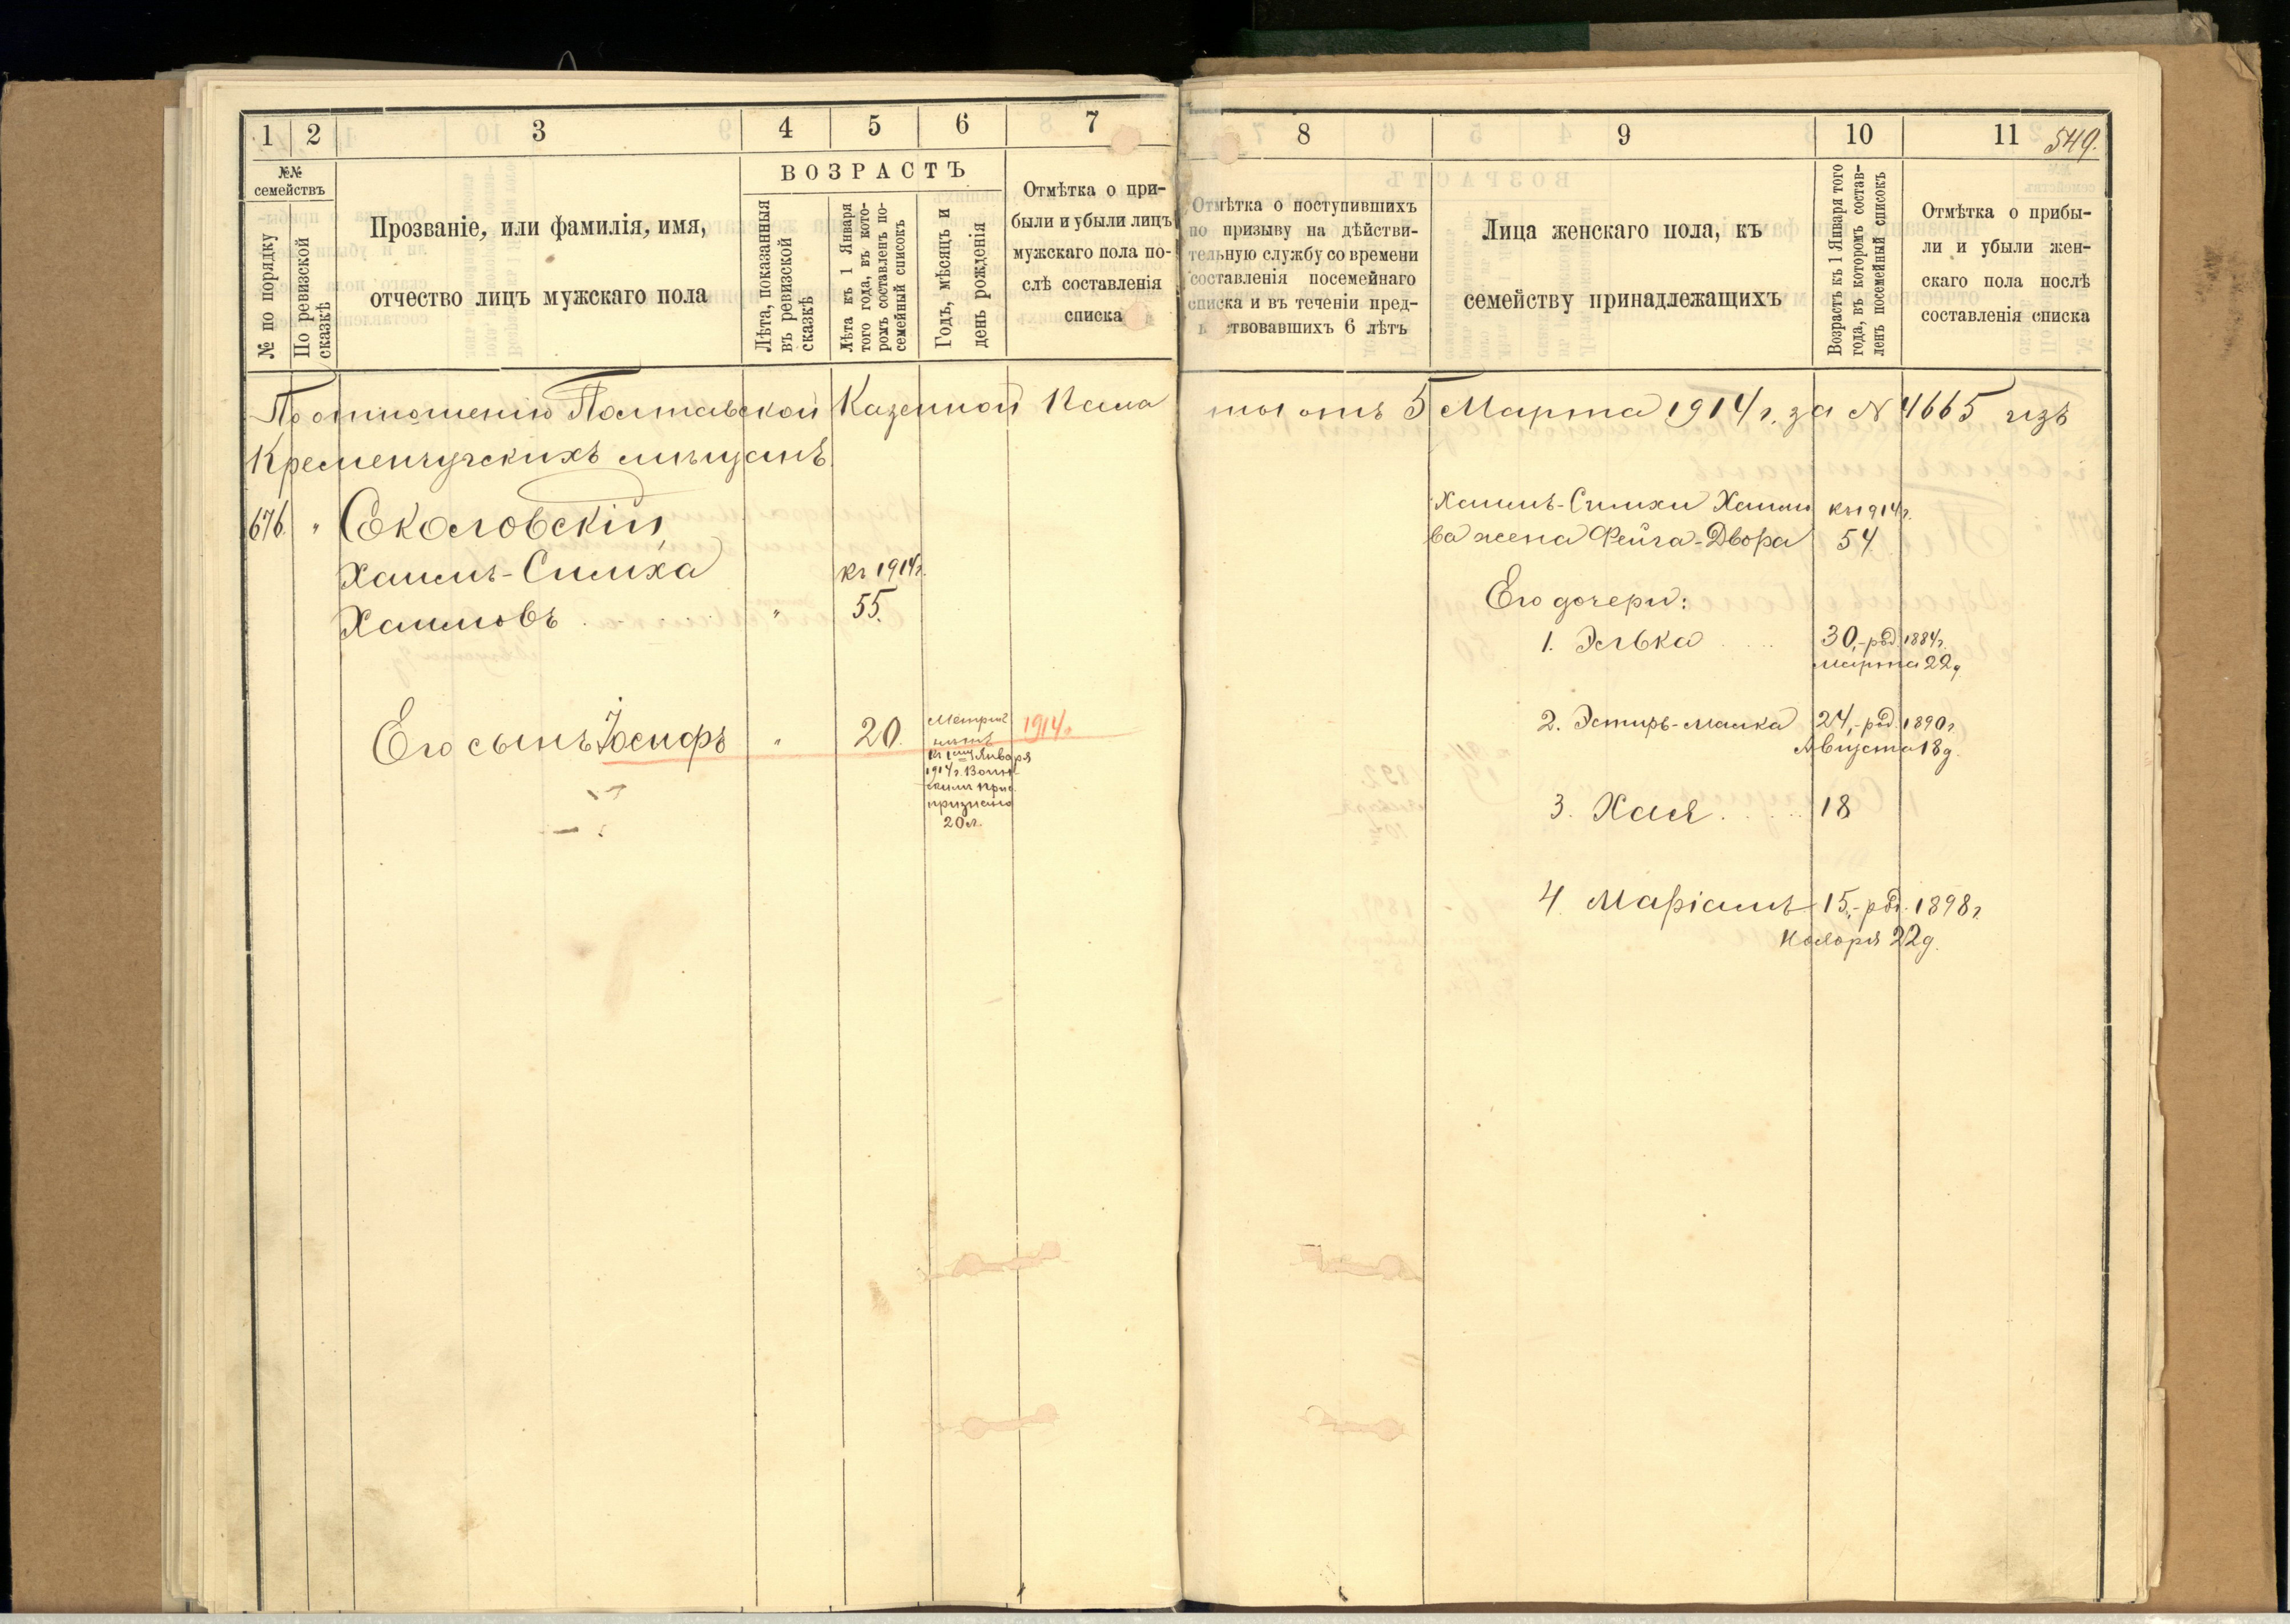 1 2 3 4 5 6 7
№№ семействъ
№ по порядку
По ревизской сказкѣ
Прозваніе, или фамилія, имя,
отчество лицъ мужскаго пола
ВОЗРАСТЪ
Лѣта, показанныя
въ ревизской
сказкѣ
Лѣта къ 1 Января
того года, въ кото-
ромъ составленъ по-
семейный списокъ
Годъ, мѣсяцъ и
день рожденія
Отмѣтка о при-
были и убыли лицъ
мужскаго пола по-
слѣ составленія
списка
По отношенію Полтавской Казенной Пала
Кременчугскихъ мѣщанъ
676. " Соколовскій,
Хаимъ-Симха къ 1914 г.
Хаимовъ " 55.
Его сынъ Іосифъ " 20.
Метрич
нѣтъ
къ 1му Января
1914 г. Воин
скимъ прис.
признано
20 л.
1914.
8 9 10 11
549.
Отмѣтка о поступившихъ
по призыву на дѣйстви-
тельную службу со времени
составленія посемейнаго
списка и въ теченіи пред-
ствовавшихъ 6 лѣтъ
Лица женскаго пола, къ
семейству принадлежащихъ
Возрастъ къ 1 Января того
года, въ которомъ состав-
ленъ посемейный списокъ
Отмѣтка о прибы-
ли и убыли жен-
скаго пола послѣ
составленія списка
ты отъ 5 Марта 1914 г. за № 4665 изъ
Хаимъ-Симхи Хаимо къ 1914 г.
ва жена Фейга-Двора 54
Его дочери:
1. Элька 30,-род. 1884 г.
марта 22 д.
2. Эстиръ-Малка 24,-род. 1890 г.
Августа 18 д.
3. Хая 18
4. Маріамъ 15,-род. 1898 г.
Ноября 22 д.